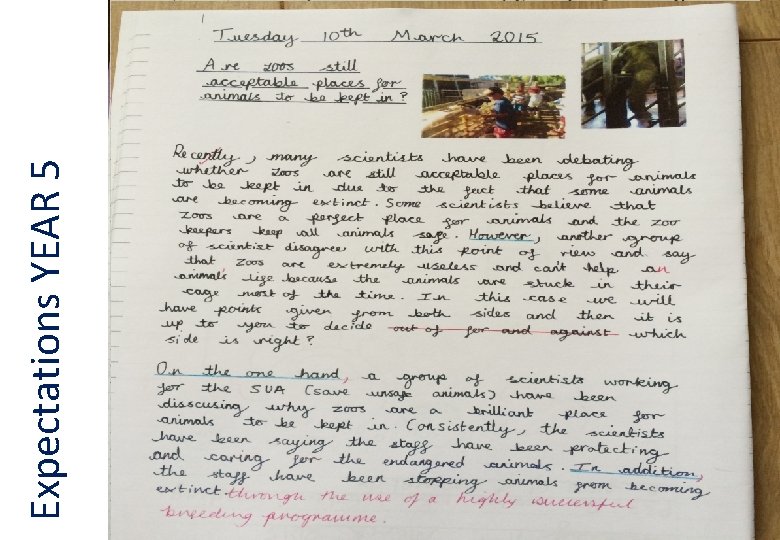 Expectations YEAR 5
Tuesday 10th March 2015
Are zoos still
acceptable places for
animals to be kept in?
Recently, many scientists have been debating
whether zoos are still acceptable places for animals
to be kept in due to the fact that some animals
are becoming extinct. Some scientists believe that
zoos are a perfect place for animals and the zoo
keepers keep all animals safe. However, another group
of scientist disagree with this point of view and say
that zoos are extremely useless and can't help an
animals life because the animals are stuck in their
cage most of the time. In this case we will
have points given from both sides and then it is
up to you to decide out of for and against which
side is right?
On the one hand, a group of scientists working
for the SUA (save unsafe animals) have been
disscusing why zoos are a brilliant place for
animals to be kept in. Consistently, the scientists
have been saying the staff have been protecting
and caring for the endangered animals. In addition,
the staff have been stopping animals from becoming
extinct through the use of a highly successful
breeding programme.